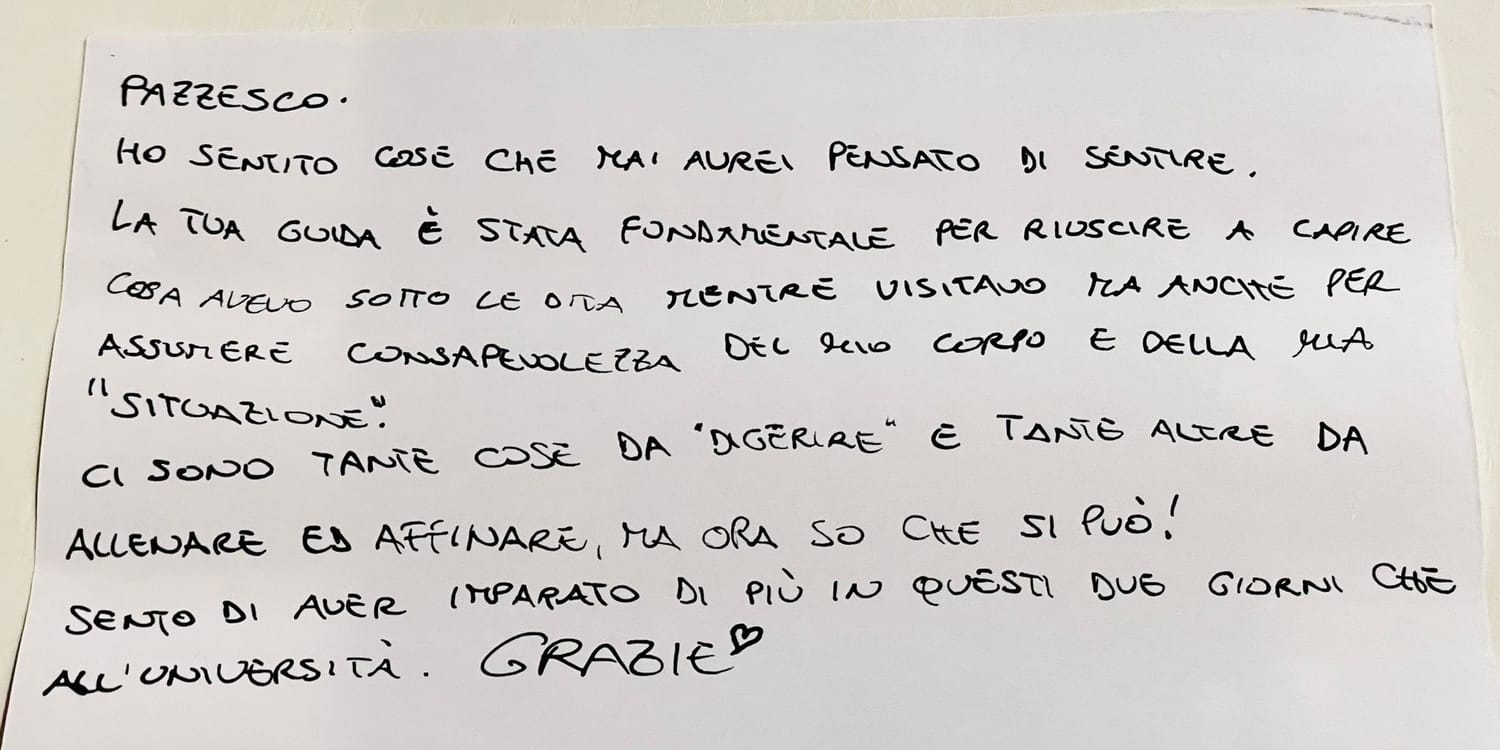 PAZZESCO.
HO SENTITO COSE CHE MAI AVREI PENSATO DI SENTIRE.
LA TUA GUIDA È STATA FONDAMENTALE PER RIUSCIRE A CAPIRE
COSA AVEVO SOTTO LE DITA MENTRE VISITAVO MA ANCHE PER
ASSUMERE CONSAPEVOLEZZA DEL MIO CORPO E DELLA MIA
"SITUAZIONE".
CI SONO TANTE COSE DA "DIGERIRE" E TANTE ALTRE DA
ALLENARE ED AFFINARE, MA ORA SO CHE SI PUÒ!
SENTO DI AVER IMPARATO DI PIÙ IN QUESTI DUE GIORNI CHE
ALL'UNIVERSITÀ. GRAZIE♡